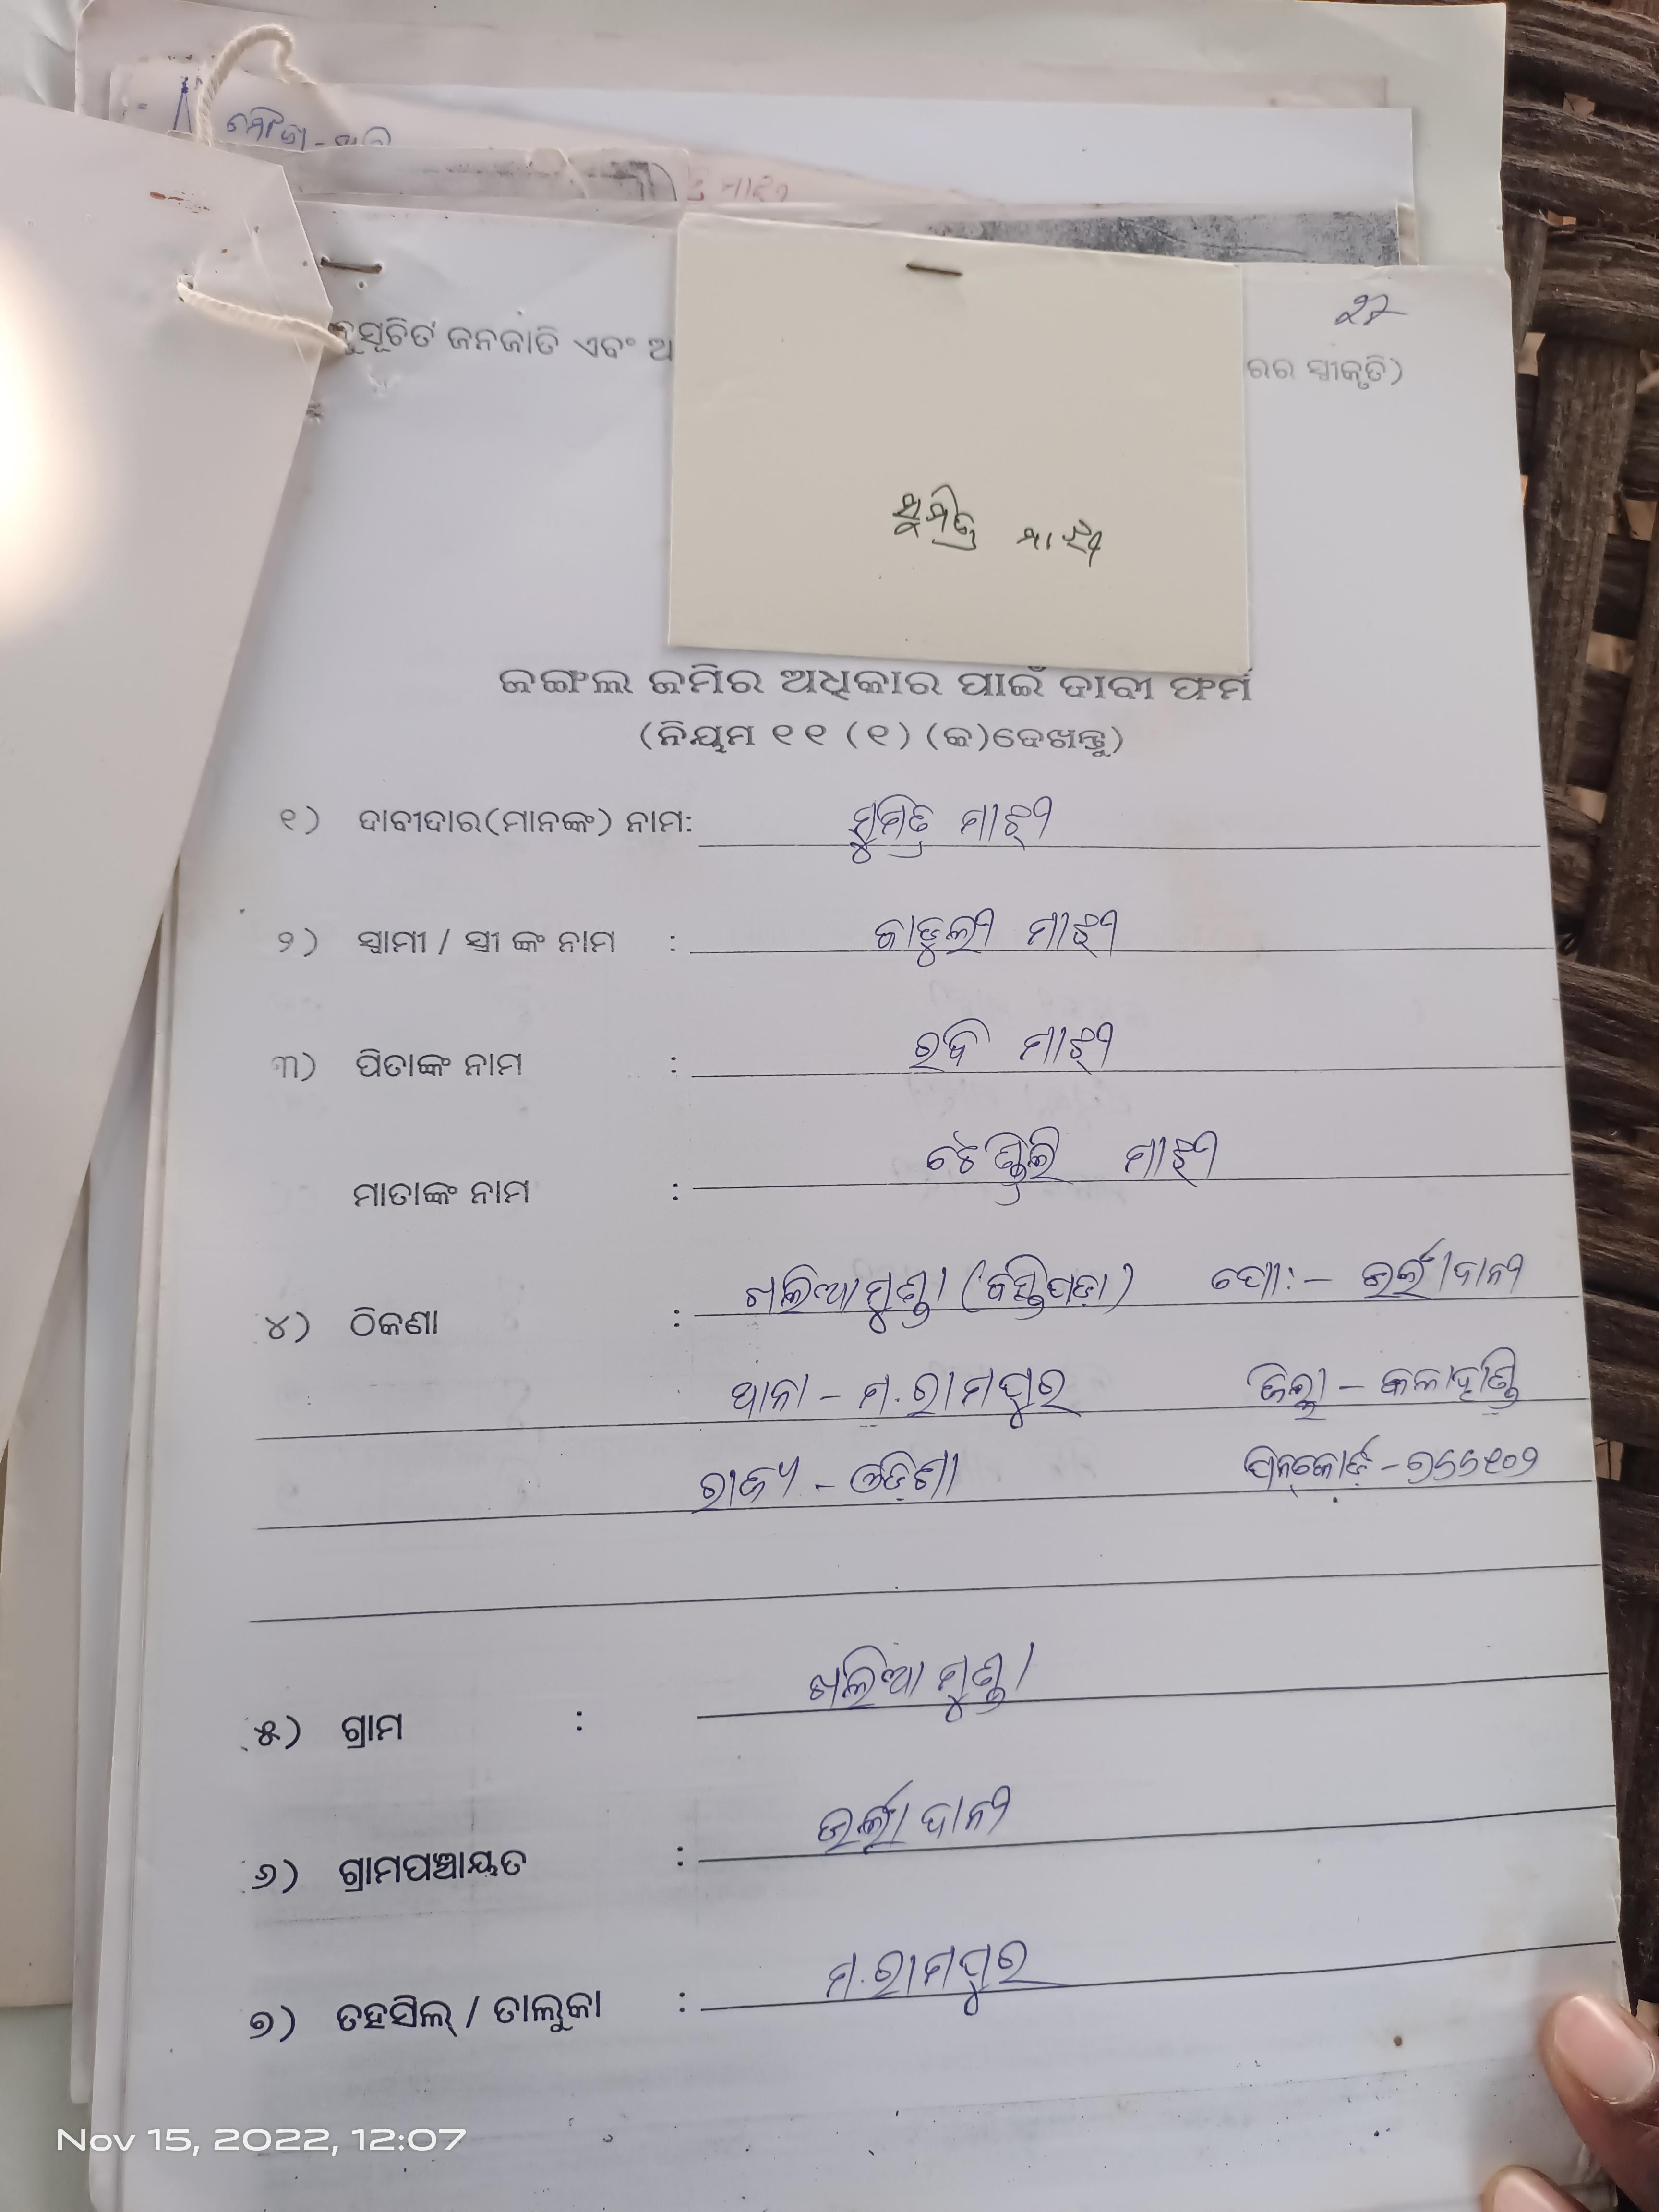 ୨୭
ନୁସୂଚିତ ଜନଜାତି ଏବଂ ଅ ରର ସ୍ୱୀକୃତି)
ସୁମିତ୍ର ମାଝୀ
ଜଙ୍ଗଲ ଜମିର ଅଧିକାର ପାଇଁ ଦାବୀ ଫର୍ମ
(ନିୟମ ୧୧ (୧) (କ)ଦେଖନ୍ତୁ)
୧) ଦାବୀଦାର(ମାନଙ୍କ) ନାମ: ସୁମିତ୍ର ମାଝୀ
୨) ସ୍ୱାମୀ / ସ୍ତ୍ରୀ ଙ୍କ ନାମ : ଜାଡୁଲୀ ମାଝୀ
୩) ପିତାଙ୍କ ନାମ : ରବି ମାଝୀ
ମାତାଙ୍କ ନାମ : ମାଝୀ
୪) ଠିକଣା : ଖଲିଆମୁଣ୍ଡା (ବସ୍ତିପଡ଼ା) ପୋ:-
ଥାନା - ମ.ରାମପୁର ଜିଲ୍ଲା - କଳାହାଣ୍ଡି
ରାଜ୍ୟ - ଓଡ଼ିଶା ପିନ୍‌କୋଡ଼ - ୭୬୬୧୦୨
୫) ଗ୍ରାମ : ଖଲିଆମୁଣ୍ଡା
୬) ଗ୍ରାମପଞ୍ଚାୟତ :
୭) ତହସିଲ୍ / ତାଲୁକା : ମ.ରାମପୁର
Nov 15, 2022, 12:07